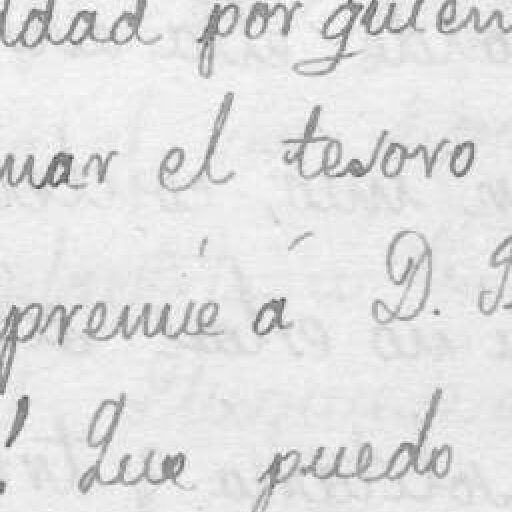 ldad por quien
uar el tesoro
premie á D.
! Que puedo